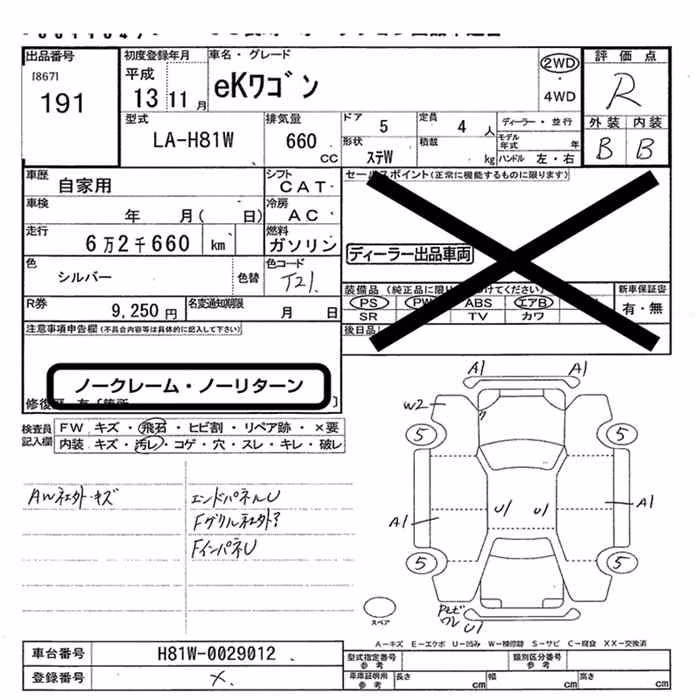 出品番号
[867]
191
初度登録年月
平成
13 11 月
車名・グレード
eKワゴン
2WD
4WD
評価点
R
外装 内装
B B
型式
LA-H81W
排気量
660
cc
ドア
5
定員
4 人
ディーラー・並行
形状
ステW
積載
kg
モデル年式 年
ハンドル 左・右
車歴
自家用
シフト
CAT
車検
年 月( 日)
冷房
AC
走行
6万2千660 km
燃料
ガソリン
色
シルバー
色替
色コード
T21
R券
9,250 円
名変通知期限
月 日
セールスポイント(正常に機能するものに限ります)
ディーラー出品車両
PS PW ABS エアB
SR TV カワ
新車保証書
有・無
後日品
注意事項申告欄(不具合内容等は具体的に記入して下さい)
ノークレーム・ノーリターン
検査員
記入欄
FW キズ・飛石・ヒビ割・リペア跡・×要
内装 キズ・汚レ・コゲ・穴・スレ・キレ・破レ
AW社外・キズ
エンドパネルU
Fグリル社外?
FインパネU
A1 A1
W2
5 5
U1 U1
A1 A1
5 5
U1
スペア
A−キズ E−エクボ U−凹み W−補修跡 S−サビ C−腐食 XX−交換済
車台番号
H81W-0029012
登録番号
×
型式指定番号
参考
類別区分番号
参考
車庫証明用
参考
長さ cm
幅 cm
高さ cm